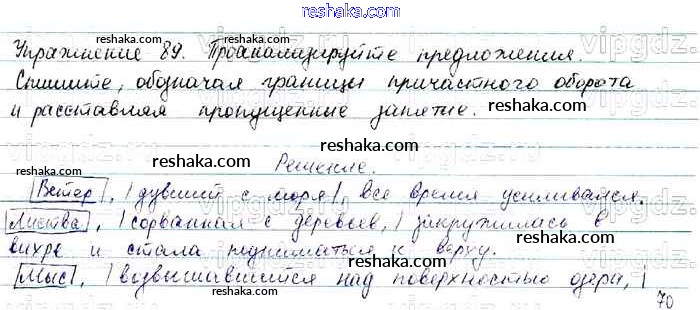 reshaka.com
Упражнение 89. Проанализируйте предложения.
reshaka.com
Спишите, обозначая границы причастного оборота
и расставляя пропущенные запятые.
reshaka.com
reshaka.com
Решение.
reshaka.com
Ветер, | дувший с моря |, все время усиливался.
reshaka.com
Листва, | сорванная с деревьев, | закружилась в
вихре и стала подниматься к верху.
reshaka.com
reshaka.com
Мыс, | возвышавшийся над поверхностью озера, |
reshaka.com
70